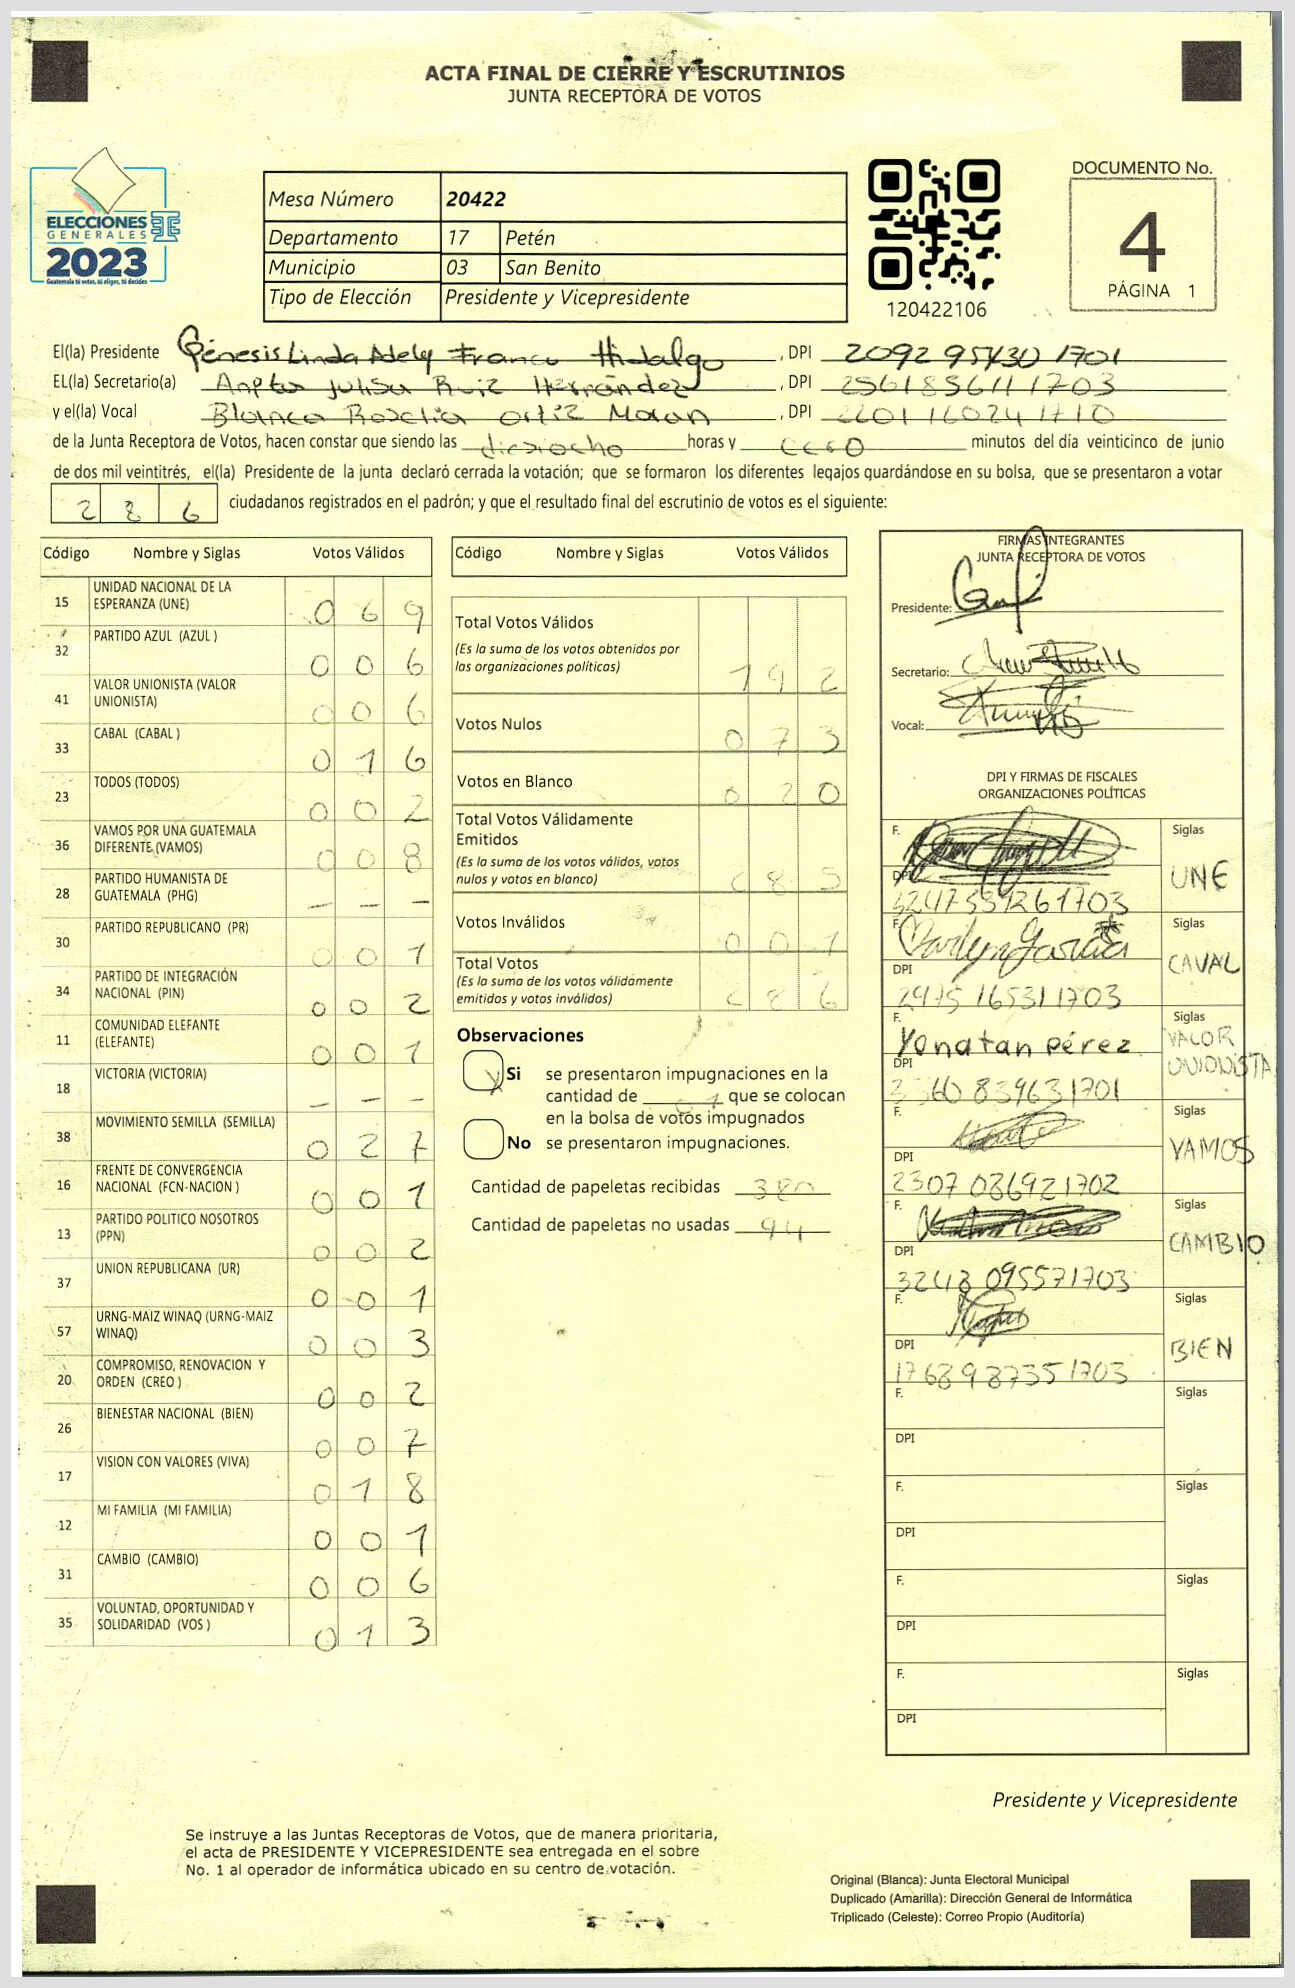 ACTA FINAL DE CIERRE Y ESCRUTINIOS
JUNTA RECEPTORA DE VOTOS
ELECCIONES
GENERALES
2023
Guatemala tú votas, tú eliges, tú decides
Mesa Número 20422
Departamento 17 Petén
Municipio 03 San Benito
Tipo de Elección Presidente y Vicepresidente
120422106
DOCUMENTO No.
4
PÁGINA 1
El(la) Presidente Génesis Linda Adely Franco Hidalgo, DPI 2092 95430 1701
EL(la) Secretario(a) Julisa Ruiz Hernández, DPI 2561856111703
y el(la) Vocal Blanca Roselia Ortiz Moran, DPI 2201160241710
de la Junta Receptora de Votos, hacen constar que siendo las dieciocho horas y cero minutos del día veinticinco de junio
de dos mil veintitrés, el(la) Presidente de la junta declaró cerrada la votación; que se formaron los diferentes legajos guardándose en su bolsa, que se presentaron a votar
286 ciudadanos registrados en el padrón; y que el resultado final del escrutinio de votos es el siguiente:
Código Nombre y Siglas Votos Válidos
15 UNIDAD NACIONAL DE LA ESPERANZA (UNE) 069
32 PARTIDO AZUL (AZUL ) 006
41 VALOR UNIONISTA (VALOR UNIONISTA) 006
33 CABAL (CABAL ) 016
23 TODOS (TODOS) 002
36 VAMOS POR UNA GUATEMALA DIFERENTE (VAMOS) 008
28 PARTIDO HUMANISTA DE GUATEMALA (PHG) - - -
30 PARTIDO REPUBLICANO (PR) 001
34 PARTIDO DE INTEGRACIÓN NACIONAL (PIN) 002
11 COMUNIDAD ELEFANTE (ELEFANTE) 001
18 VICTORIA (VICTORIA) - - -
38 MOVIMIENTO SEMILLA (SEMILLA) 027
16 FRENTE DE CONVERGENCIA NACIONAL (FCN-NACION ) 001
13 PARTIDO POLITICO NOSOTROS (PPN) 002
37 UNION REPUBLICANA (UR) 001
57 URNG-MAIZ WINAQ (URNG-MAIZ WINAQ) 003
20 COMPROMISO, RENOVACION Y ORDEN (CREO ) 002
26 BIENESTAR NACIONAL (BIEN) 007
17 VISION CON VALORES (VIVA) 018
12 MI FAMILIA (MI FAMILIA) 001
31 CAMBIO (CAMBIO) 006
35 VOLUNTAD, OPORTUNIDAD Y SOLIDARIDAD (VOS ) 013
Código Nombre y Siglas Votos Válidos
Total Votos Válidos
(Es la suma de los votos obtenidos por
las organizaciones políticas) 192
Votos Nulos 073
Votos en Blanco 020
Total Votos Válidamente
Emitidos
(Es la suma de los votos válidos, votos
nulos y votos en blanco) 285
Votos Inválidos 001
Total Votos
(Es la suma de los votos válidamente
emitidos y votos inválidos) 286
Observaciones
Si se presentaron impugnaciones en la
cantidad de 01 que se colocan
en la bolsa de votos impugnados
No se presentaron impugnaciones.
Cantidad de papeletas recibidas 380
Cantidad de papeletas no usadas 94
FIRMAS INTEGRANTES
JUNTA RECEPTORA DE VOTOS
Presidente:
Secretario:
Vocal:
DPI Y FIRMAS DE FISCALES
ORGANIZACIONES POLÍTICAS
F. Siglas
DPI UNE
F. Marilyn García Siglas
DPI 2975 165311703 CAVAL
F. Yonatan pérez Siglas
DPI 3360 839631701 VALOR UNIONISTA
F. Siglas
DPI 2307 086921702 VAMOS
F. Siglas
DPI 3248 095571703 CAMBIO
F. Siglas
DPI 1768987351703 BIEN
F. Siglas
DPI
F. Siglas
DPI
F. Siglas
DPI
F. Siglas
DPI
Presidente y Vicepresidente
Se instruye a las Juntas Receptoras de Votos, que de manera prioritaria,
el acta de PRESIDENTE Y VICEPRESIDENTE sea entregada en el sobre
No. 1 al operador de informática ubicado en su centro de votación.
Original (Blanca): Junta Electoral Municipal
Duplicado (Amarilla): Dirección General de Informática
Triplicado (Celeste): Correo Propio (Auditoría)